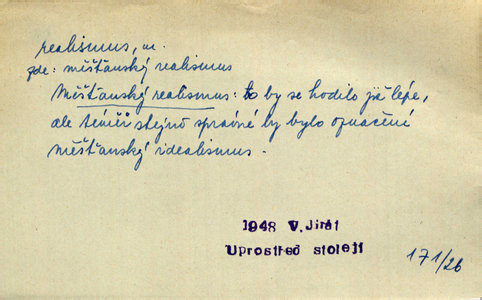 realismus, m.
zde: měšťanský realismus
Měšťanský realismus: to by se hodilo již lépe,
ale téměř stejně správné by bylo označení
měšťanský idealismus.
1948 V. Jirát
Uprostřed století
171/26